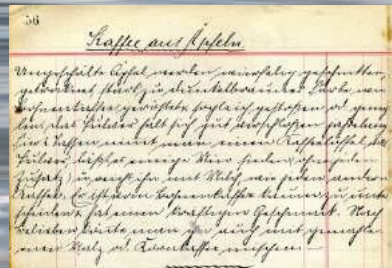 56
Kaffee aus Äpfeln
Ungeschälte Äpfel werden würfelig geschnitten
getrocknet stark zu dunkelbrauner Farbe wie
Bohnenkaffee geröstet, sogleich gestoßen od. gemah
len, das Pulver hält sich gut verschlossen
Für Tassen nimmt man einen Kaffeelöffel, das
Pulver läßt man einige Min. sieden, ohne jeden
Zusatz, u. reicht ihn mit Milch wie jeden andern
Kaffee. Er ist vom Bohnenkaffee kaum zu unter
scheiden, hat einen kräftigen Geschmack. Nach
belieben kann man ja auch mit gemahle
nen Malz od. Kornkaffee mischen. —